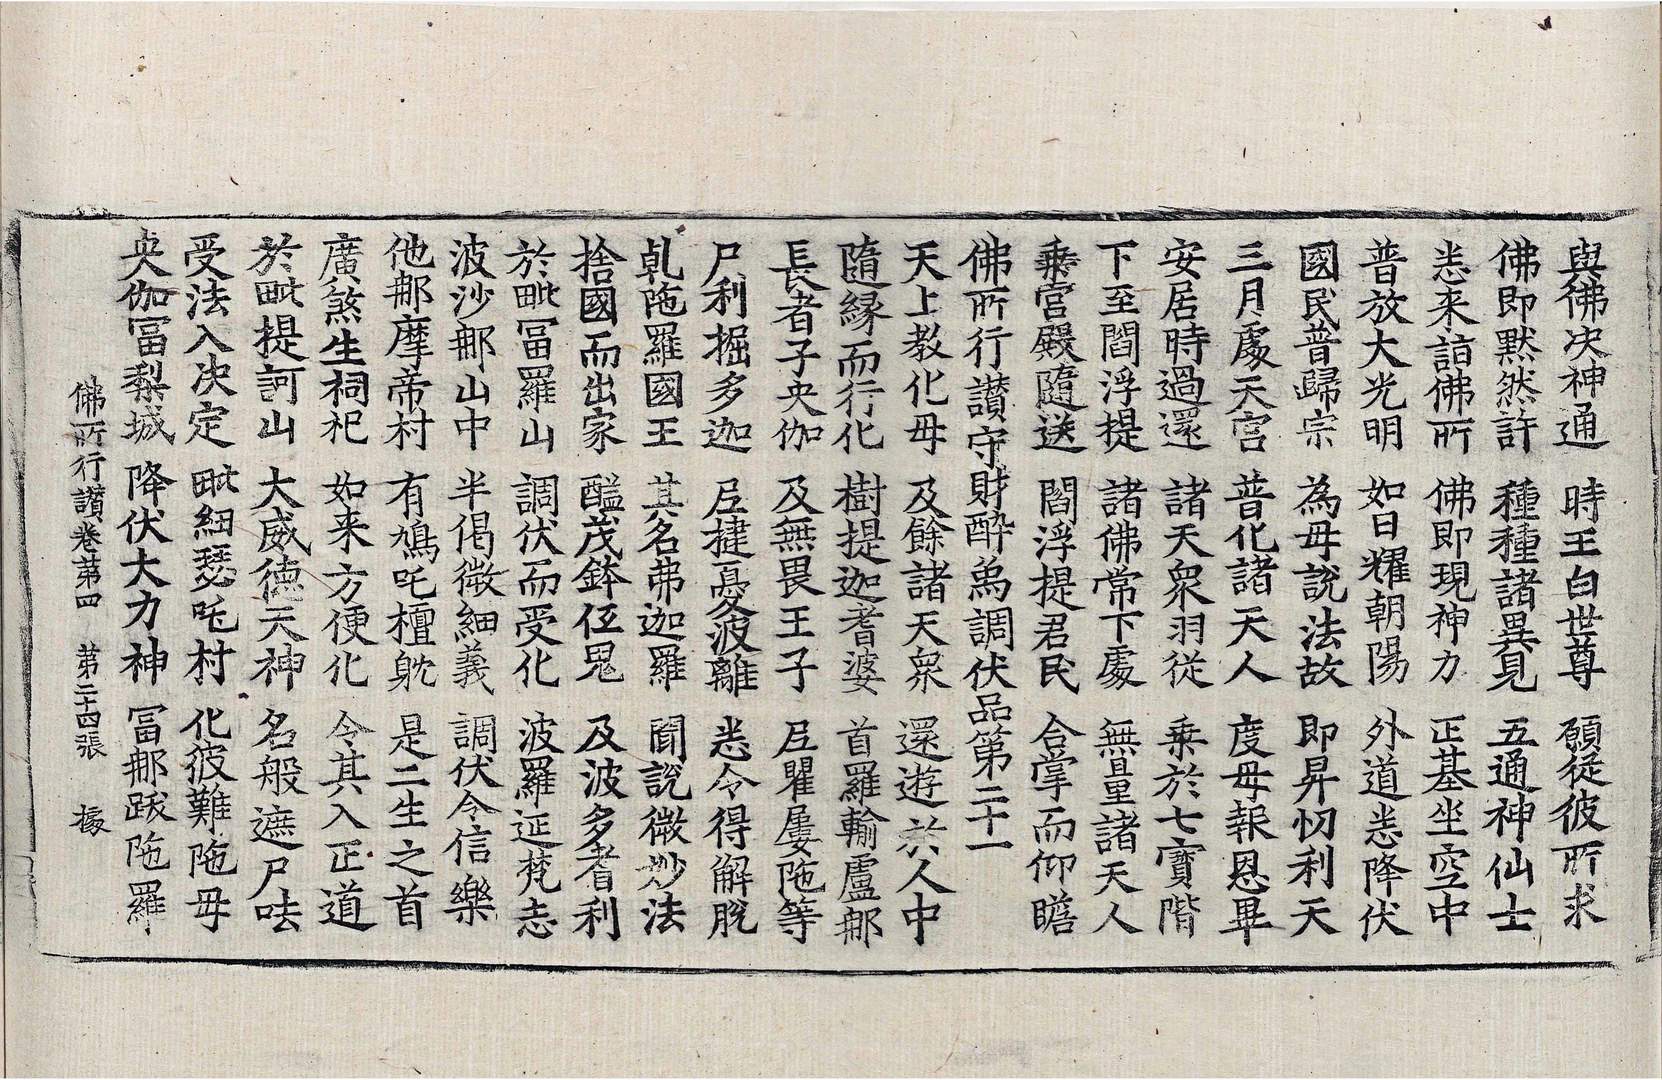 與佛决神通 時王白世尊 願從彼所求
佛即黙然許 種種諸異見 五通神仙士
悉来詣佛所 佛即現神力 正基坐空中
普放大光明 如日耀朝陽 外道悉降伏
國民普歸宗 為母說法故 即昇忉利天
三月處天宮 普化諸天人 度母報恩畢
安居時過還 諸天衆羽從 乗於七寶階
下至閻浮提 諸佛常下處 無量諸天人
乗宮殿隨送 閻浮提君民 合掌而仰瞻
佛所行讃守財醉為調伏品第二十一
天上教化母 及餘諸天衆 還遊於人中
隨縁而行化 樹提迦耆婆 首羅輸盧那
長者子央伽 及無畏王子 尼瞿屢陁等
尸利掘多迦 尼揵憂波離 悉令得解脫
乹陁羅國王 其名弗迦羅 聞說微妙法
捨國而出家 醯茂鉢伍鬼 及波多耆利
於毗冨羅山 調伏而受化 波羅延梵志
波沙那山中 半偈微細義 調伏令信樂
他那摩帝村 有鳩吒檀躭 是二生之首
廣煞生祠祀 如来方便化 令其入正道
於毗提訶山 大威德天神 名般遮尸呿
受法入决定 毗細瑟吒村 化彼難陁母
央伽冨梨城 降伏大力神 冨那跋陁羅
佛所行讃卷第四 第二十四張 據